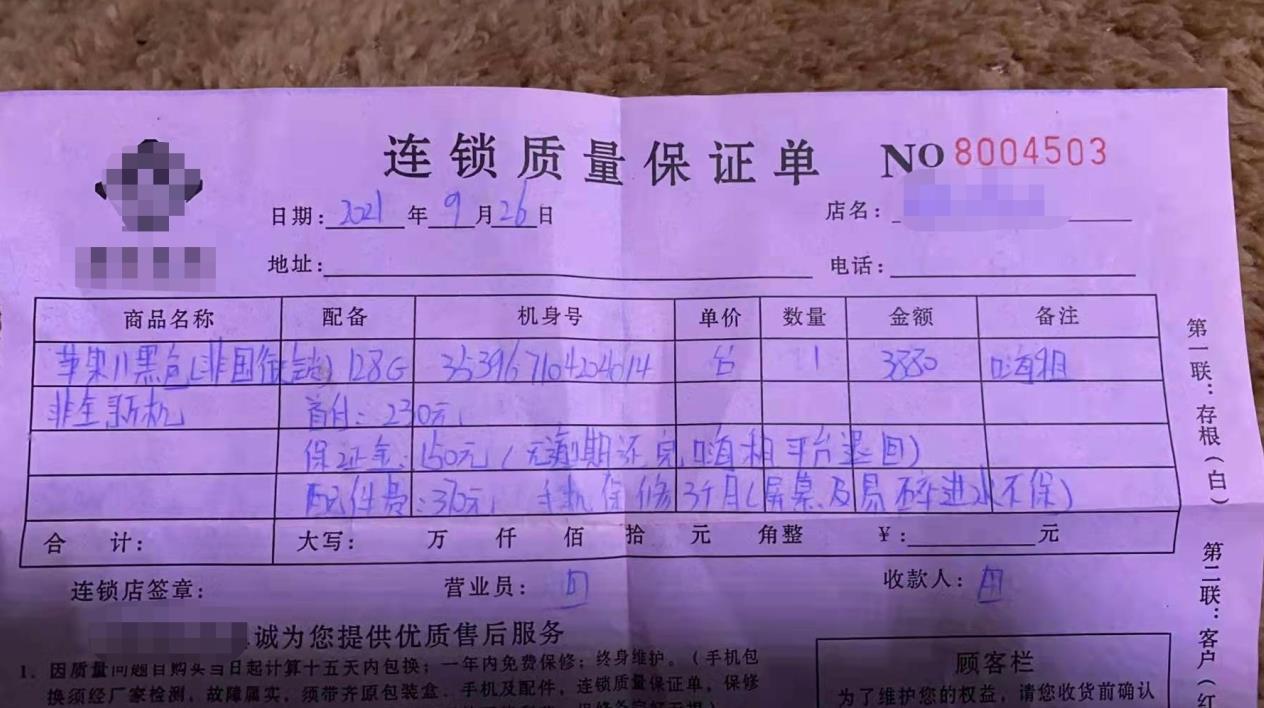 连锁质量保证单 NO 8004503
日期: 2021 年 9 月 26 日 店名:
地址: 电话:
商品名称 配备 机身号 单价 数量 金额 备注
苹果11黑色(非国行 128G 353967104204014 台 1 3880 嗨租
非全新机 首付: 230元,
保证金: 150元 (无逾期还完嗨租平台退回)
配件费: 370元, 手机保修3个月(屏幕及易碎进水不保)
合 计: 大写: 万 仟 佰 拾 元 角整 ¥: 元
连锁店签章: 营业员: 田 收款人: 田
第一联:存根(白)
第二联:客户(红
诚为您提供优质售后服务
1. 因质量问题自购买当日起计算十五天内包换;一年内免费保修;终身维护。(手机包
换须经厂家检测,故障属实,须带齐原包装盒、手机及配件,连锁质量保证单,保修
顾客栏
为了维护您的权益,请您收货前确认